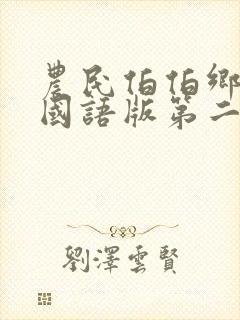 農民伯伯鄉
國語版第二
劉澤雲賢